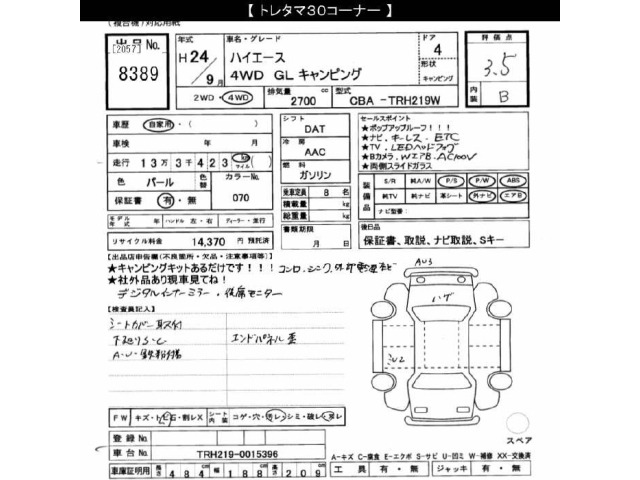 【 トレタマ30コーナー 】
(複合機)対応用紙
出品No.
[2057]
8389
年式
H 24年
9月
車名・グレード
ハイエース
4WD GL キャンピング
ドア
4
形状
キャンピング
評価点
3.5
内装
B
2WD・4WD
排気量
2700 cc
型式
CBA-TRH219W
車歴 自家用・( )
車検 年 月
走行 13万3千423 km マイル ( )
色 パール 色替 カラーNo. 070
保証書 有・無
モデル年式 年 ハンドル 左・右 ディーラー・並行
リサイクル料金 14,370 円 預託済
シフト
DAT
冷房
AAC
燃料
ガソリン
乗車定員 8 名
積載量 kg
総重量 kg
書類期限
月 日
セールスポイント
★ポップアップルーフ!!!
★ナビ、キーレス、ETC
★TV、LEDヘッドフォグ
★Bカメラ、WエアB、AC100V
★両側スライドガラス
装備品
S/R 純A/W P/S P/W ABS
純TV 純ナビ 革シート 外ナビ エアB
ナビ型番:
後日品
保証書、取説、ナビ取説、Sキー
【出品店申告欄(不良箇所・欠品・注意事項等)】
★キャンピングキットあるだけです!!! コンロ、シンク、外部電源ナビ
★社外品あり現車見てね!
デジタルインナーミラー、後席モニター
【検査員記入】
シートカバー取付
下廻りS・C
A・U・鉄粉
エンドパネル歪
AU3
ハゲ
U2
FW キズ・トビ石・割レX シート内装 コゲ・穴・切レ・シミ・破レ・スレ
登録No.
車台No. TRH219-0015396
車庫証明用 長さ 484 幅 188 高さ 209
スペア
A-キズ C-腐食 E-エクボ S-サビ U-凹ミ W-補修 XX-交換済
工具 有・無 ジャッキ 有・無